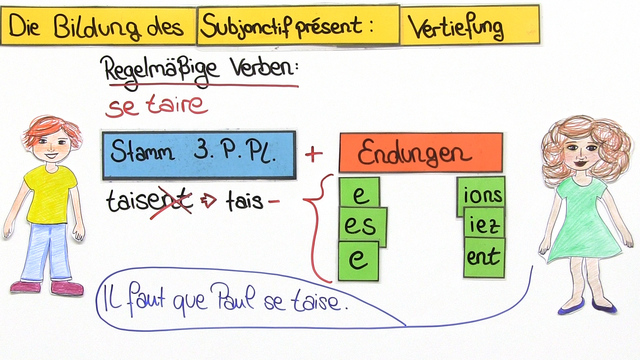 Die Bildung des Subjonctif présent: Vertiefung
Regelmäßige Verben:
se taire
Stamm 3. P. Pl. + Endungen
taisent ⇒ tais-
e ions
es iez
e ent
Il faut que Paul se taise.